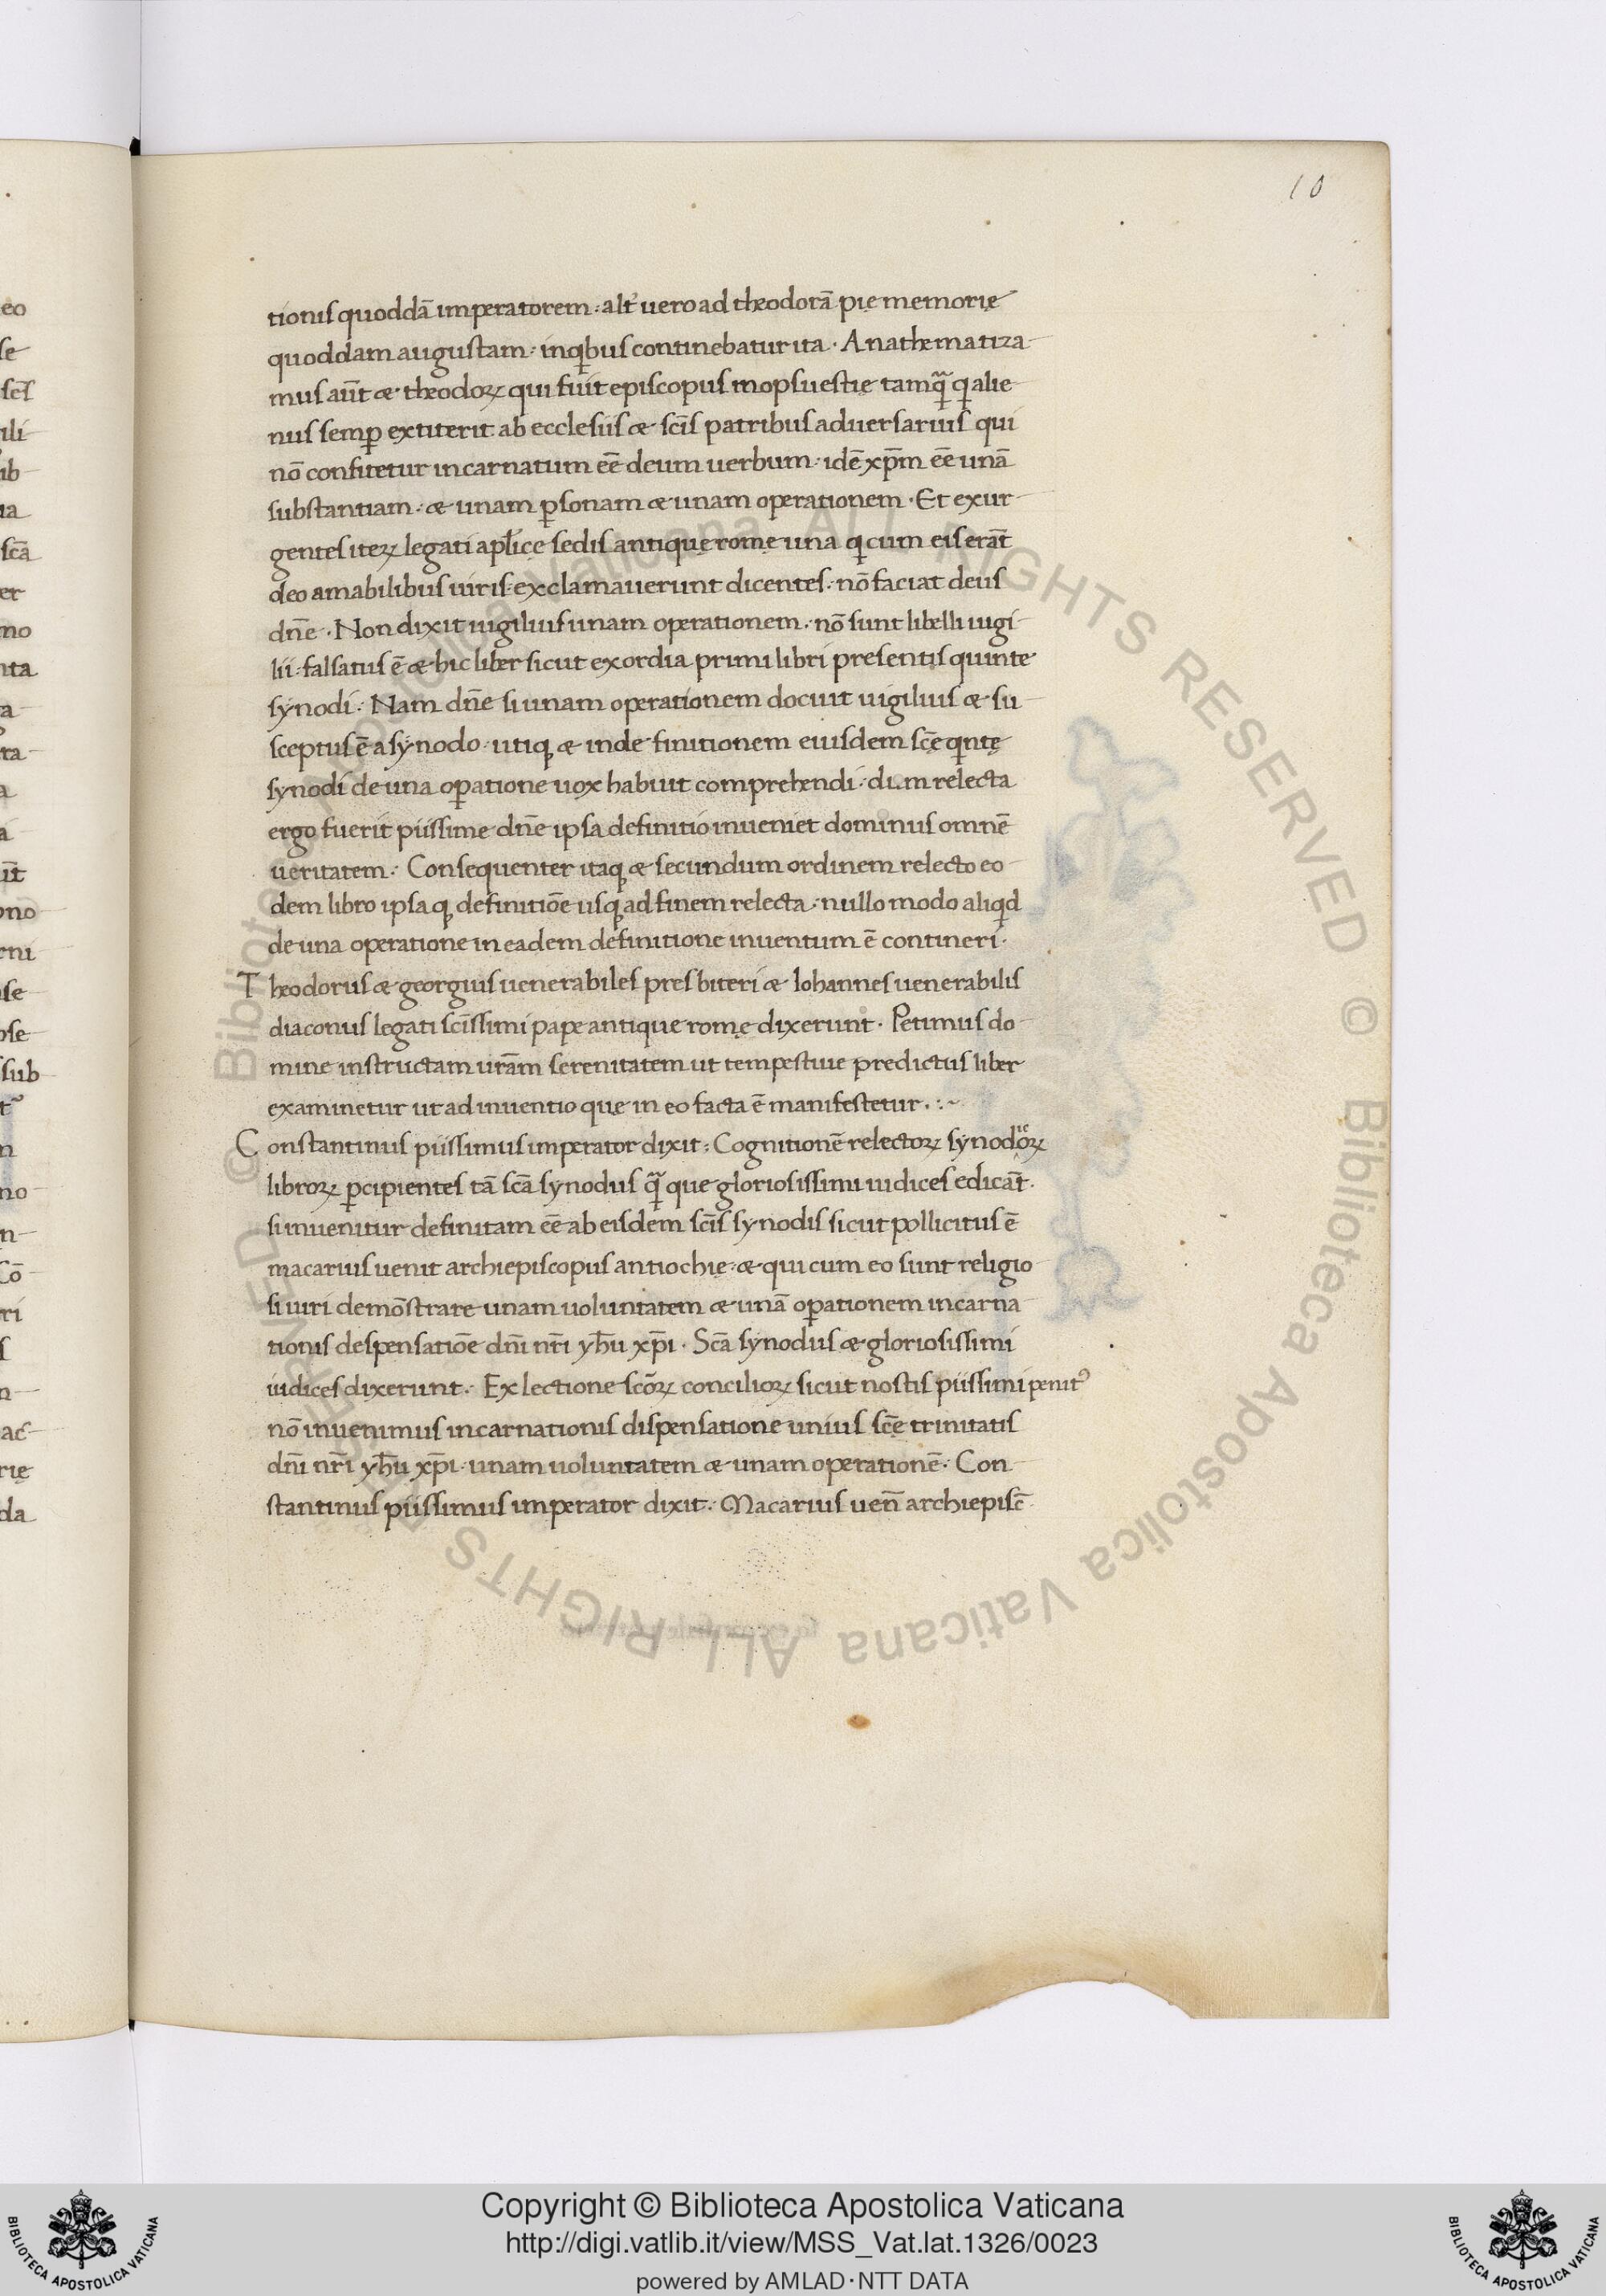 10
tionis quoddā imperatorem : alt̄ uero ad theodorā pię memorię
quoddam augustam : in qͥbus continebatur ita · Anathematiza
mus aūt & theodoꝝ qui fuit episcopus mopsuestię tamqͣ̄ qͥ alie
nus semꝑ extiterit ab ecclesiis & sc̄is patribus aduersarius qui
nō confitetur incarnatum eē deum uerbum · idē xp̄m eē unā
substantiam : & unam ꝑsonam & unam operationem · Et exur
gentes iteꝝ legati apl̄ice sedis antique rome una qͥ cum eis erāt
deo amabilibus uiris · exclamauerunt dicentes · nō faciat deus
dn̄e · Non dixit uigilius unam operationem · nō sunt libelli uigi
lii · falsatus ē & hic liber sicut exordia primi libri presentis quinte
synodi · Nam dn̄e si unam operationem docuit uigilius & su
sceptus ē a synodo · utiqꝫ & inde finitionem eiusdem sc̄ę qͥntę
synodi de una oꝑatione uox habuit comprehendi · dum relecta
ergo fuerit piissime dn̄e ipsa definitio inueniet dominus omnē
ueritatem · Consequenter itaqꝫ & secundum ordinem relecto eo
dem libro ipsaqꝫ definitiōe usqꝫ ad finem relecta · nullo modo aliqͥd
de una operatione in eadem definitione inuentum ē contineri ·
Theodorus & georgius uenerabiles presbiteri & Iohannes uenerabilis
diaconus legati sc̄issimi pape antique romę dixerunt · Petimus do
mine instructam ur̄am serenitatem ut tempestiue predictus liber
examinetur ut adinuentio quę in eo facta ē manifestetur · : ~
Constantinus piissimus imperator dixit : Cognitionē relectoꝝ synodoꝝ
libroꝝ ꝑcipientes tā sc̄a synodus qͣ̄ que gloriosissimi iudices edicāt ·
si inuenitur definitam eē ab eisdem sc̄is synodis sicut pollicitus ē
macarius uenit archiepiscopus antiochię · & qui cum eo sunt religio
si uiri demōstrare unam uoluntatem & unā oꝑationem incarna
tionis despensatiōe dn̄i nr̄i yh̄u xp̄i · Sc̄a synodus & gloriosissimi
iudices dixerunt · Ex lectione sc̄oꝝ concilioꝝ sicut nostis piissimi penit᾽
nō inuenimus incarnationis dispensatione unius sc̄ę trinitatis
dn̄i nr̄i yh̄u xp̄i · unam uoluntatem & unam operationē · Con
stantinus piissimus imperator dixit · Macarius uen̄ archiepisc̄
© Biblioteca Apostolica Vaticana ALL RIGHTS RESERVED © Biblioteca Apostolica Vaticana ALL RIGHTS RESERVED
Copyright © Biblioteca Apostolica Vaticana
http://digi.vatlib.it/view/MSS_Vat.lat.1326/0023
powered by AMLAD·NTT DATA
BIBLIOTECA APOSTOLICA VATICANA
BIBLIOTECA APOSTOLICA VATICANA